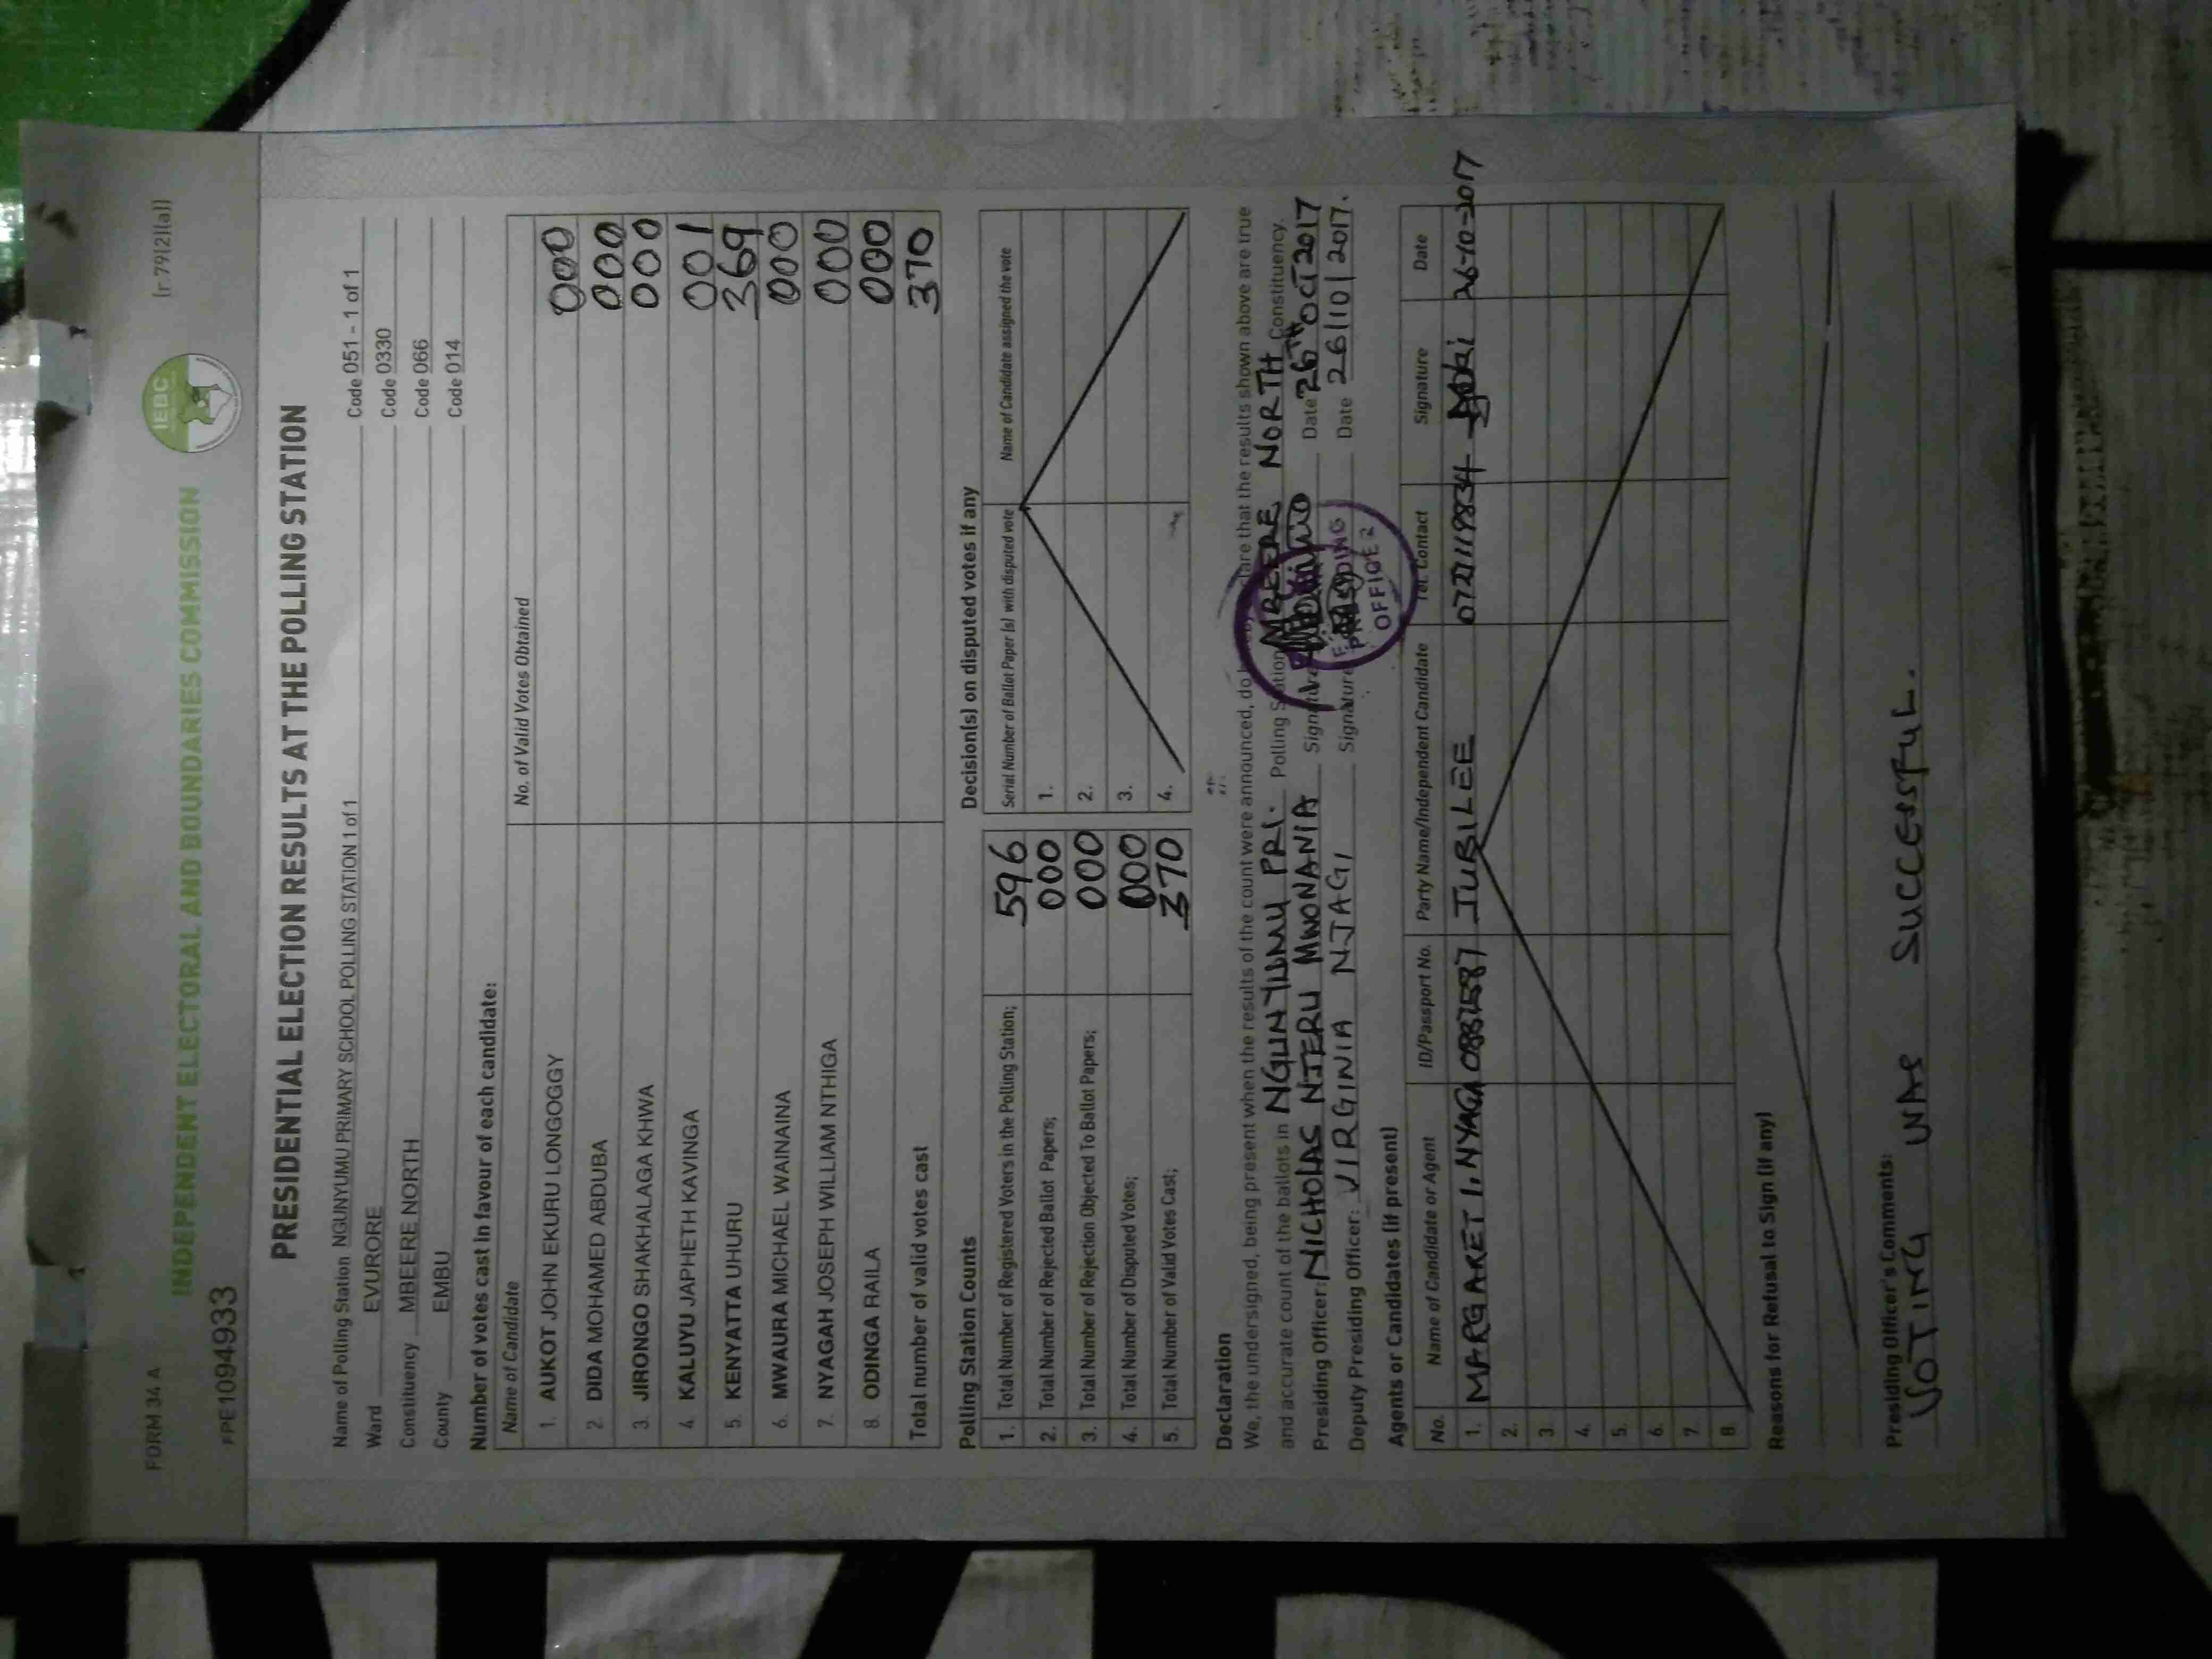 FORM 34 A
[r 79(2)(a)]
IEBC
INDEPENDENT ELECTORAL AND BOUNDARIES COMMISSION
PPE1094933
PRESIDENTIAL ELECTION RESULTS AT THE POLLING STATION
Name of Polling Station NGUNYUMU PRIMARY SCHOOL POLLING STATION 1 of 1 Code 051 - 1 of 1
Ward EVURORE Code 0330
Constituency MBEERE NORTH Code 066
County EMBU Code 014
Number of votes cast in favour of each candidate:
Name of Candidate No. of Valid Votes Obtained
1. AUKOT JOHN EKURU LONGOGGY 000
2. DIDA MOHAMED ABDUBA 000
3. JIRONGO SHAKHALAGA KHWA 000
4. KALUYU JAPHETH KAVINGA 001
5. KENYATTA UHURU 369
6. MWAURA MICHAEL WAINAINA 000
7. NYAGAH JOSEPH WILLIAM NTHIGA 000
8. ODINGA RAILA 000
Total number of valid votes cast 370
Polling Station Counts
1. Total Number of Registered Voters in the Polling Station; 596
2. Total Number of Rejected Ballot Papers; 000
3. Total Number of Rejection Objected To Ballot Papers; 000
4. Total Number of Disputed Votes; 000
5. Total Number of Valid Votes Cast; 370
Decision(s) on disputed votes if any
Serial Number of Ballot Paper (s) with disputed vote Name of Candidate assigned the vote
1.
2.
3.
4.
Declaration
We, the undersigned, being present when the results of the count were announced, do declare that the results shown above are true
and accurate count of the ballots in NGUNYUMU PRI. Polling Station MBEERE NORTH Constituency.
Presiding Officer: NICHOLAS NJERU MWONANIA Signature Date 26TH OCT 2017
Deputy Presiding Officer: VIRGINIA NJAGI Signature Date 26/10/2017.
PRESIDING
OFFICE 2
Agents or Candidates (if present)
No. Name of Candidate or Agent ID/Passport No. Party Name/Independent Candidate Tel. Contact Signature Date
1. MARGARET I. NYAGA JUBILEE 26-10-2017
2.
3.
4.
5.
6.
7.
8.
Reasons for Refusal to Sign (if any)
Presiding Officer's Comments:
VOTING WAS SUCCESSFUL.